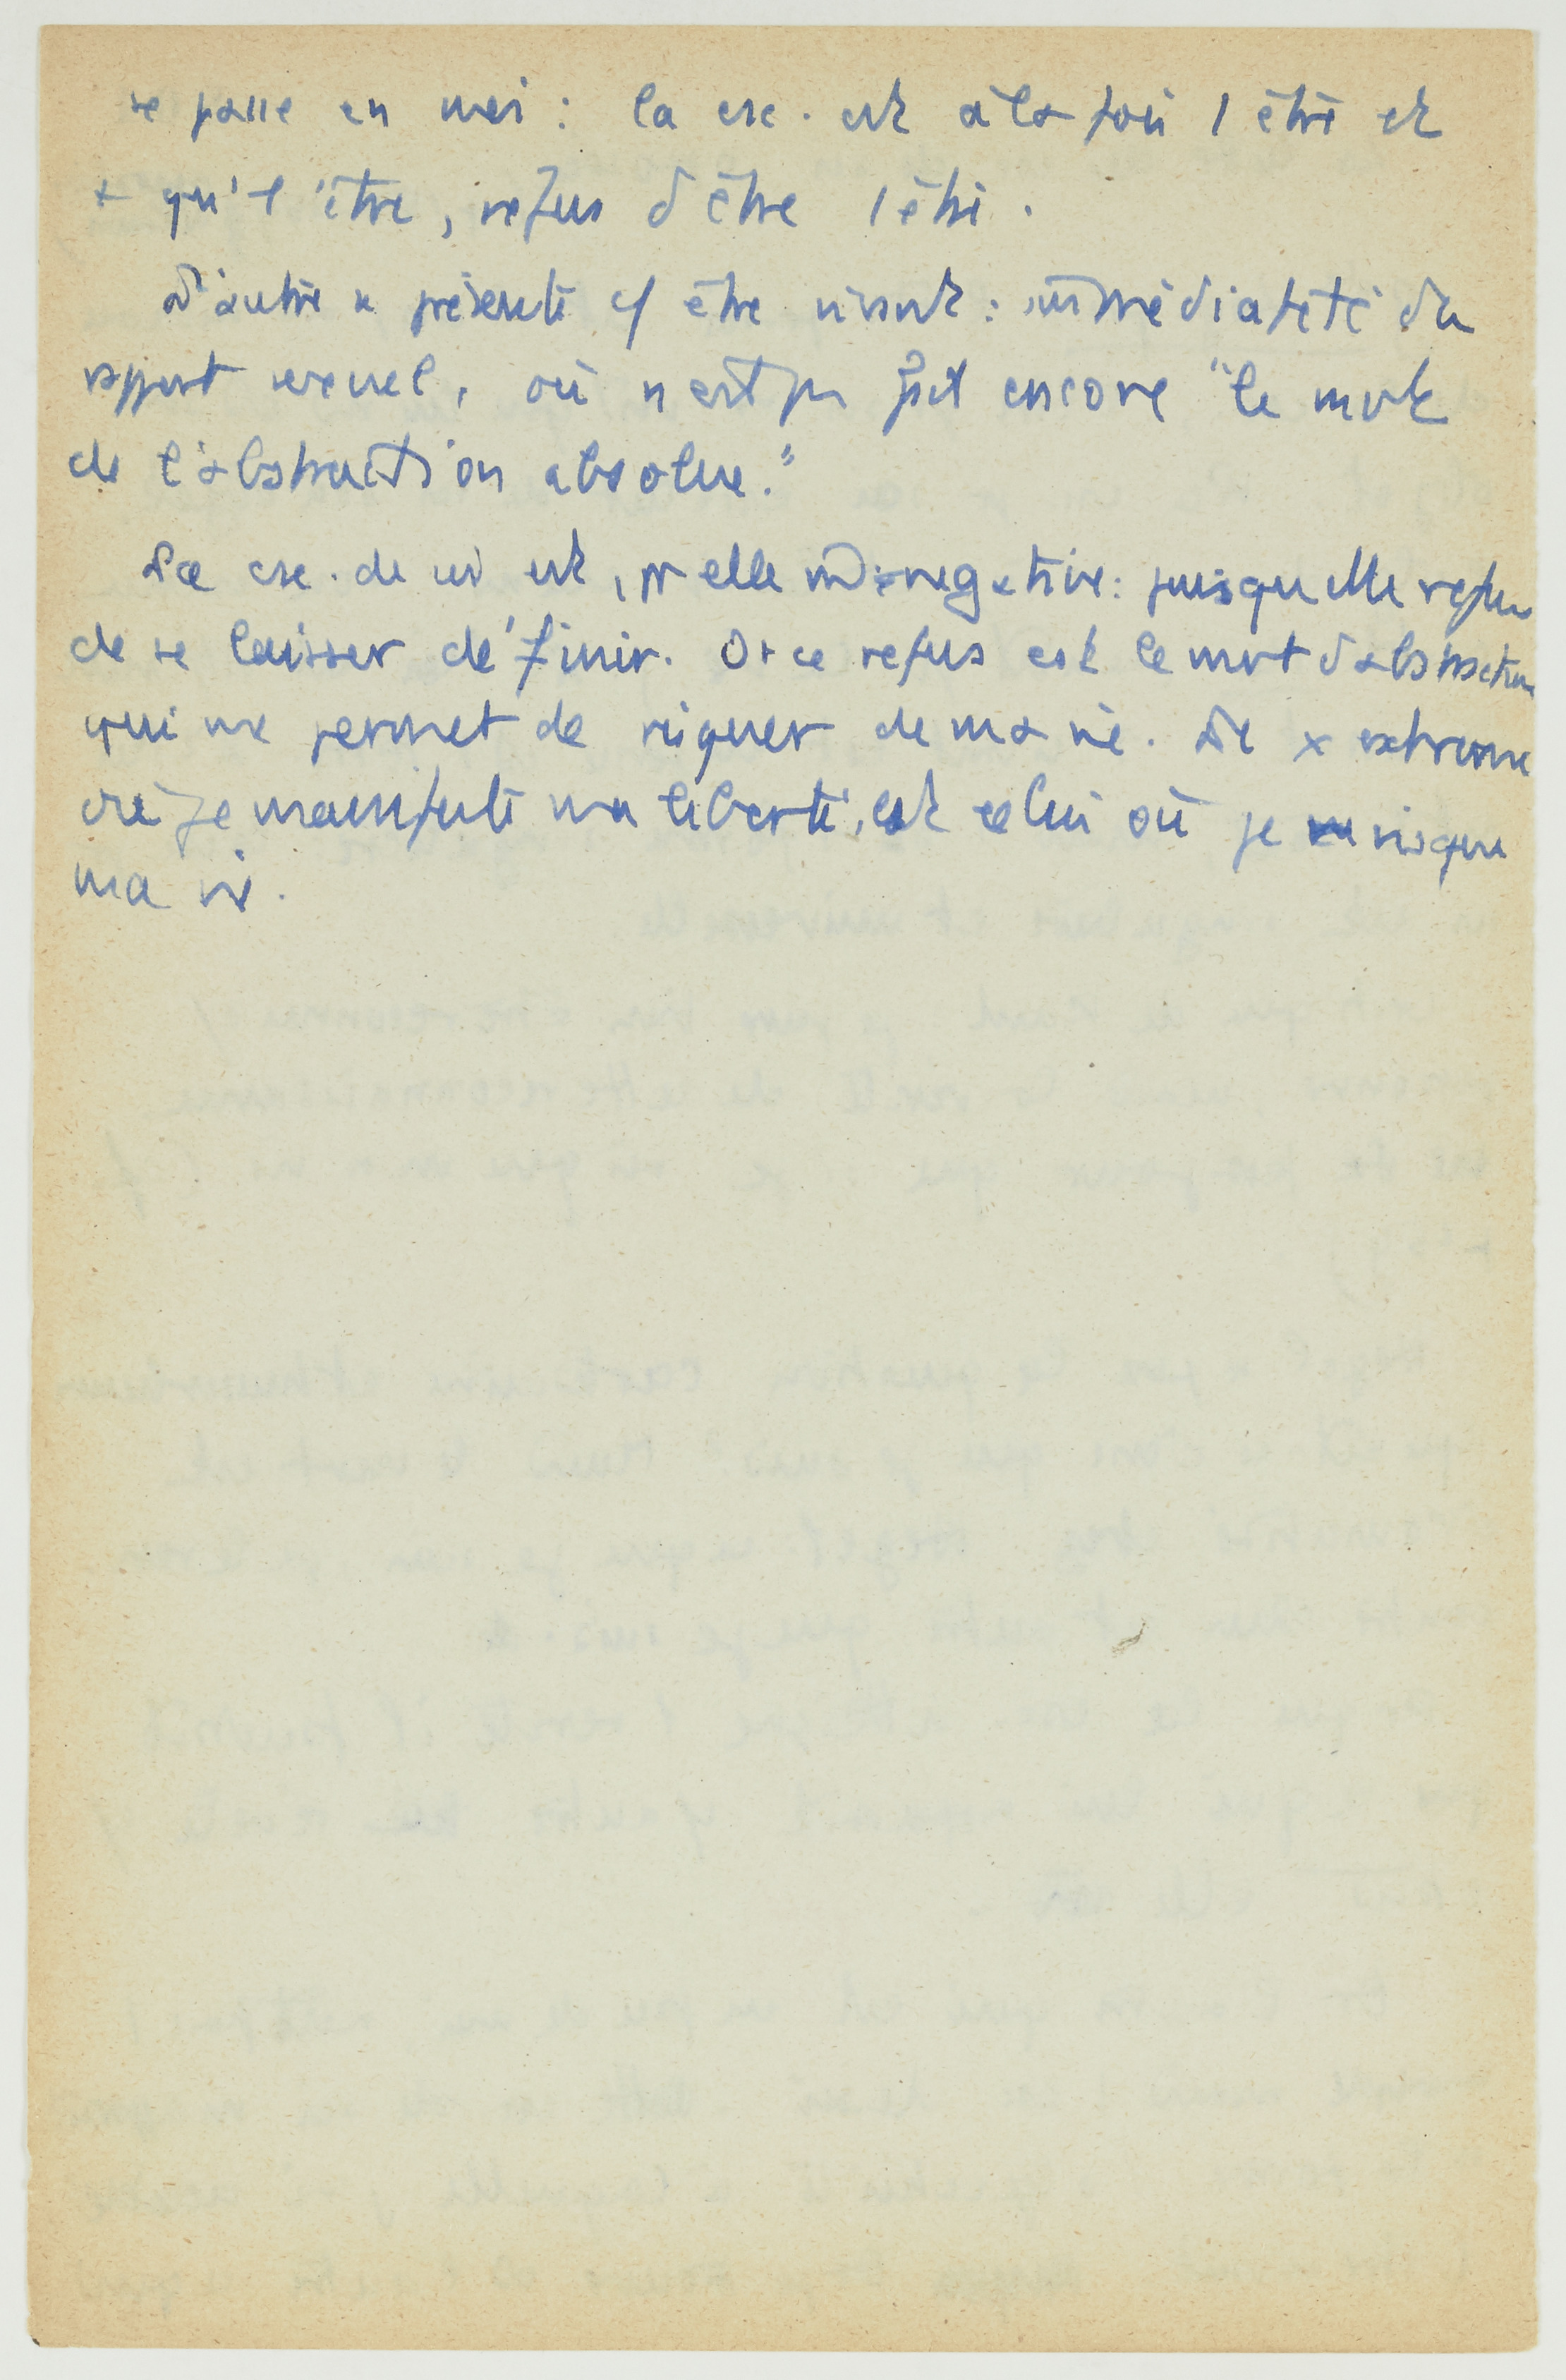 se passe en moi : la csc. est à la fois l'être et
+ qu'l'être, refus d'être l'être.
L'autre se présente c/ être vivant : immédiateté du
rapport sexuel, où n'est pas fait encore "le mvt
de l'abstraction absolue."
La csc. de soi est, pr elle négative : puisqu'elle refuse
de se laisser définir. Or ce refus est le mvt d'abstraction
qui me permet de risquer de ma vie. Le extrême
où je manifeste ma liberté, est celui où je risque
ma vie.